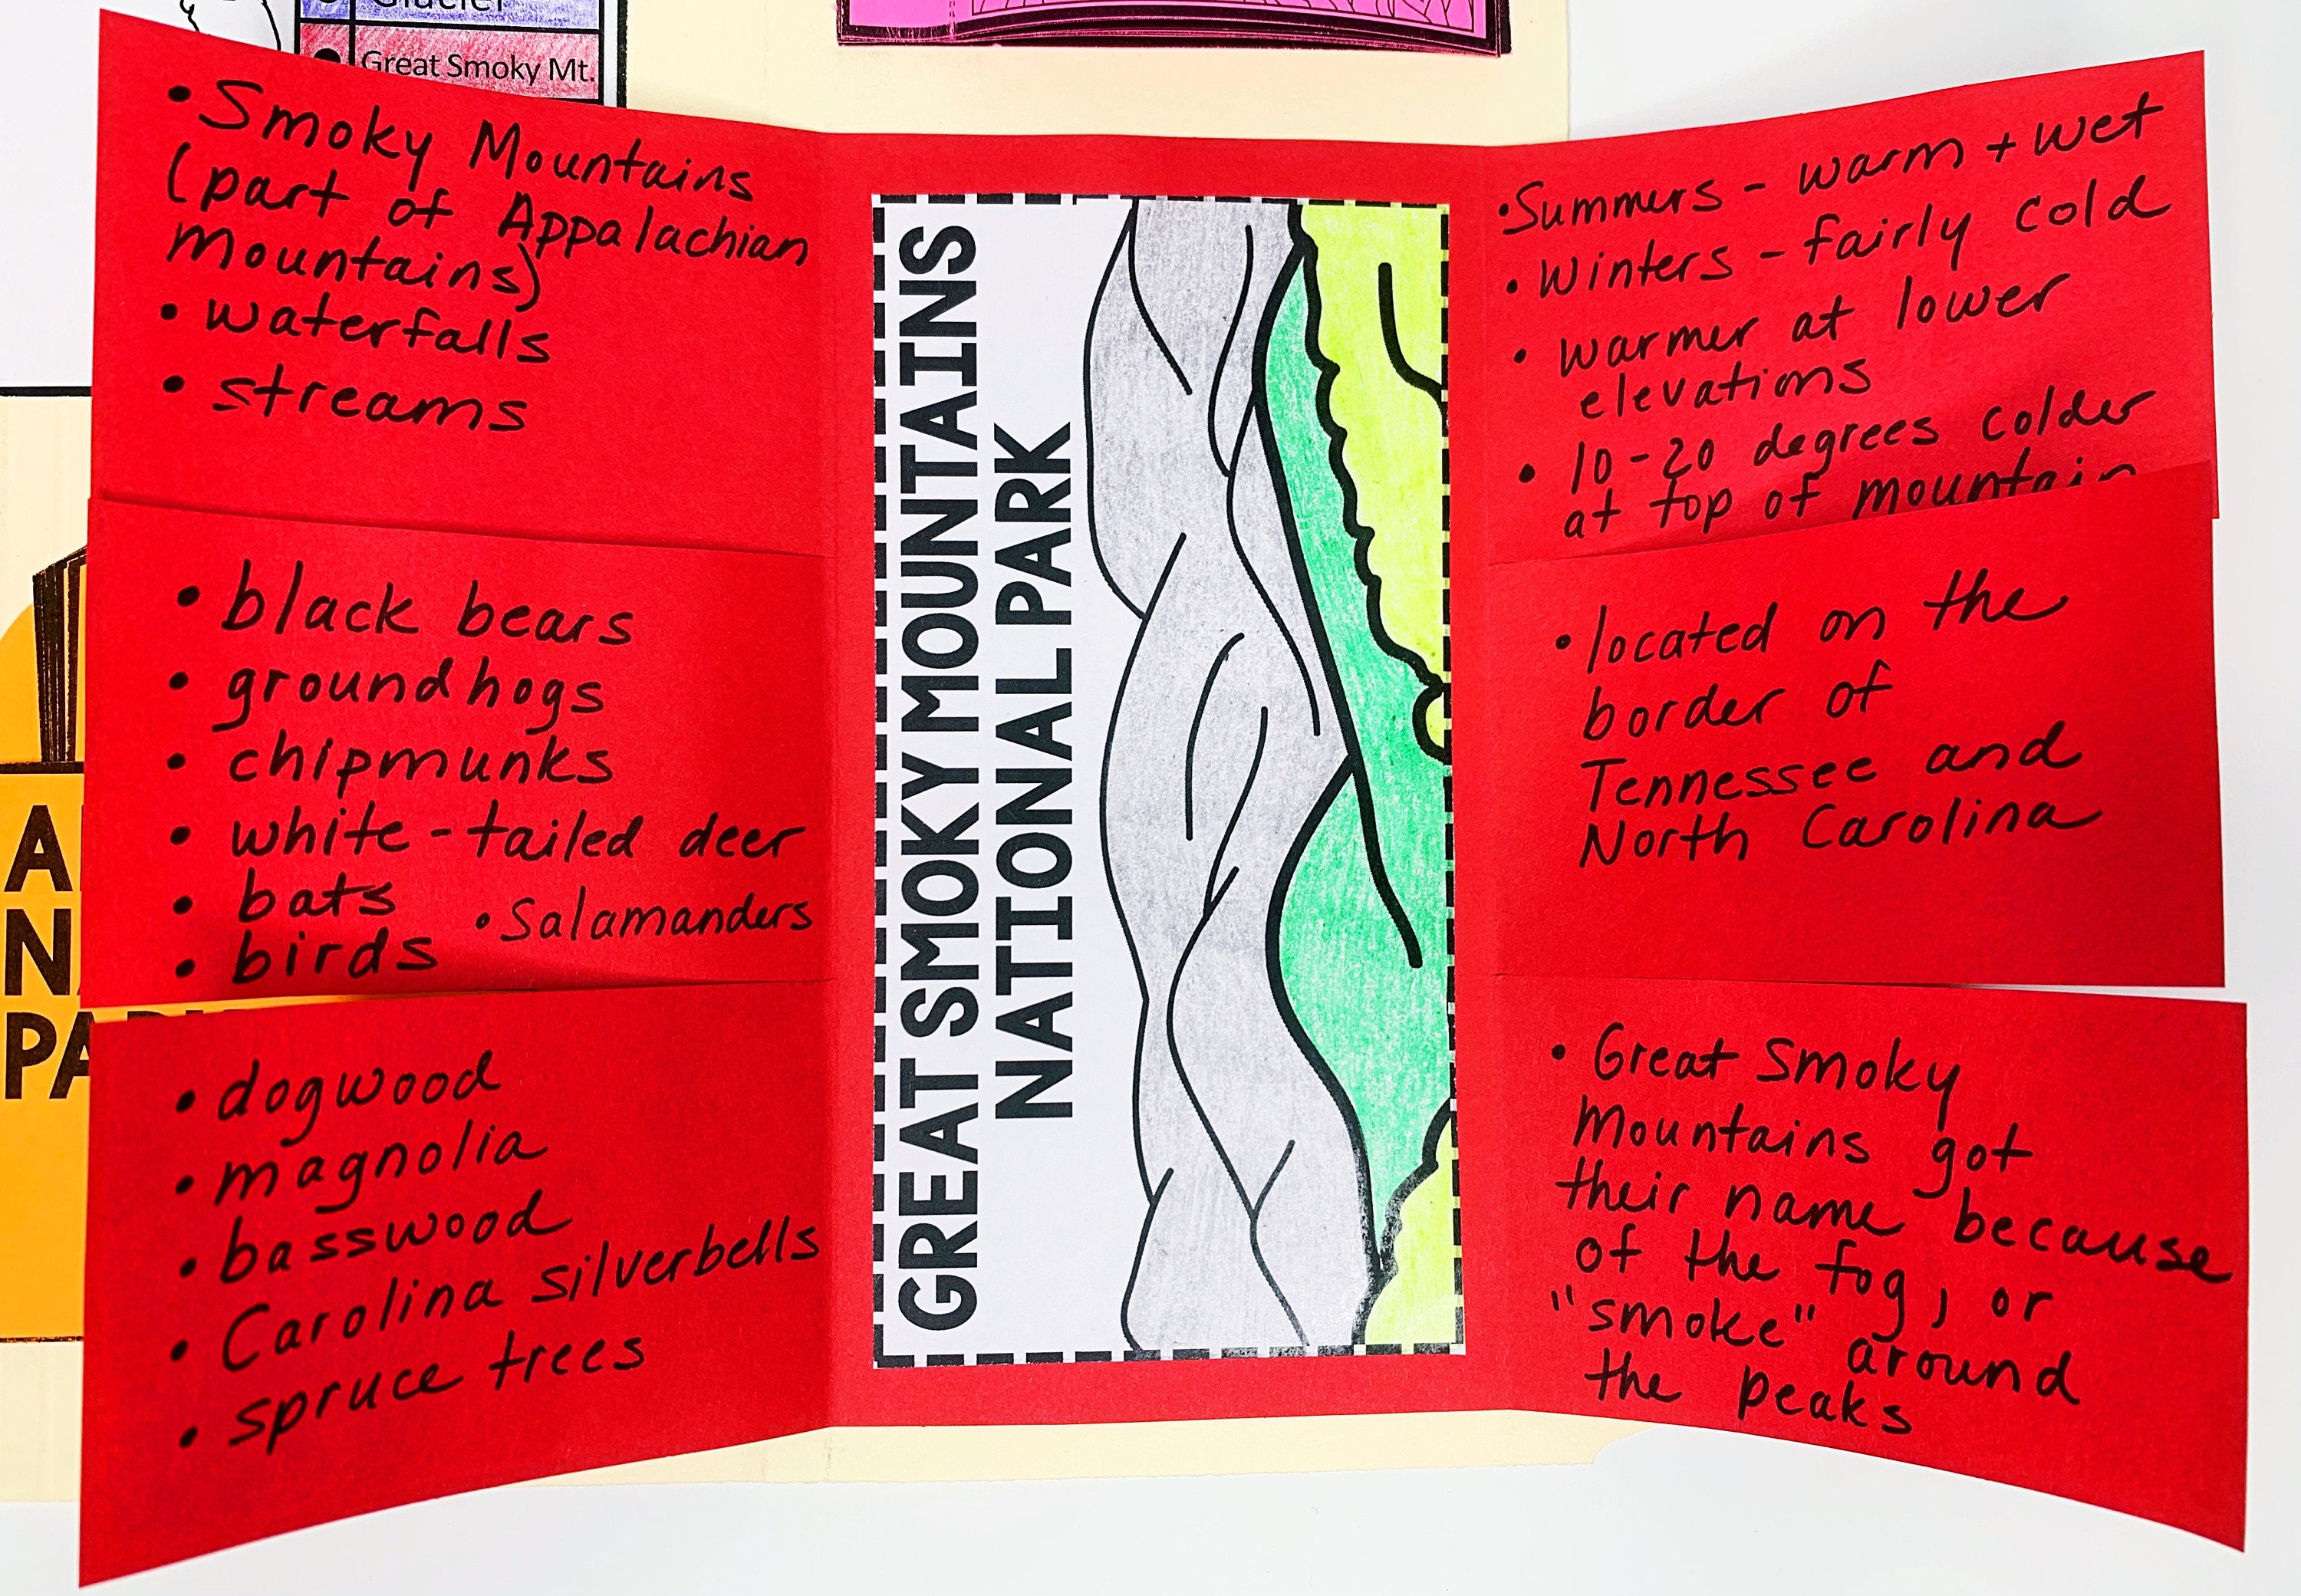 Glacier
Great Smoky Mt.
• Smoky Mountains
(part of Appalachian
Mountains)
• waterfalls
• streams
• black bears
• groundhogs
• chipmunks
• white-tailed deer
• bats • Salamanders
• birds
• dogwood
• magnolia
• basswood
• Carolina silverbells
• spruce trees
GREAT SMOKY MOUNTAINS
NATIONAL PARK
• Summers - warm + wet
• Winters - fairly cold
• warmer at lower
elevations
• 10-20 degrees colder
at top of mountain
• located on the
border of
Tennessee and
North Carolina
• Great Smoky
Mountains got
their name because
of the fog, or
"smoke" around
the peaks